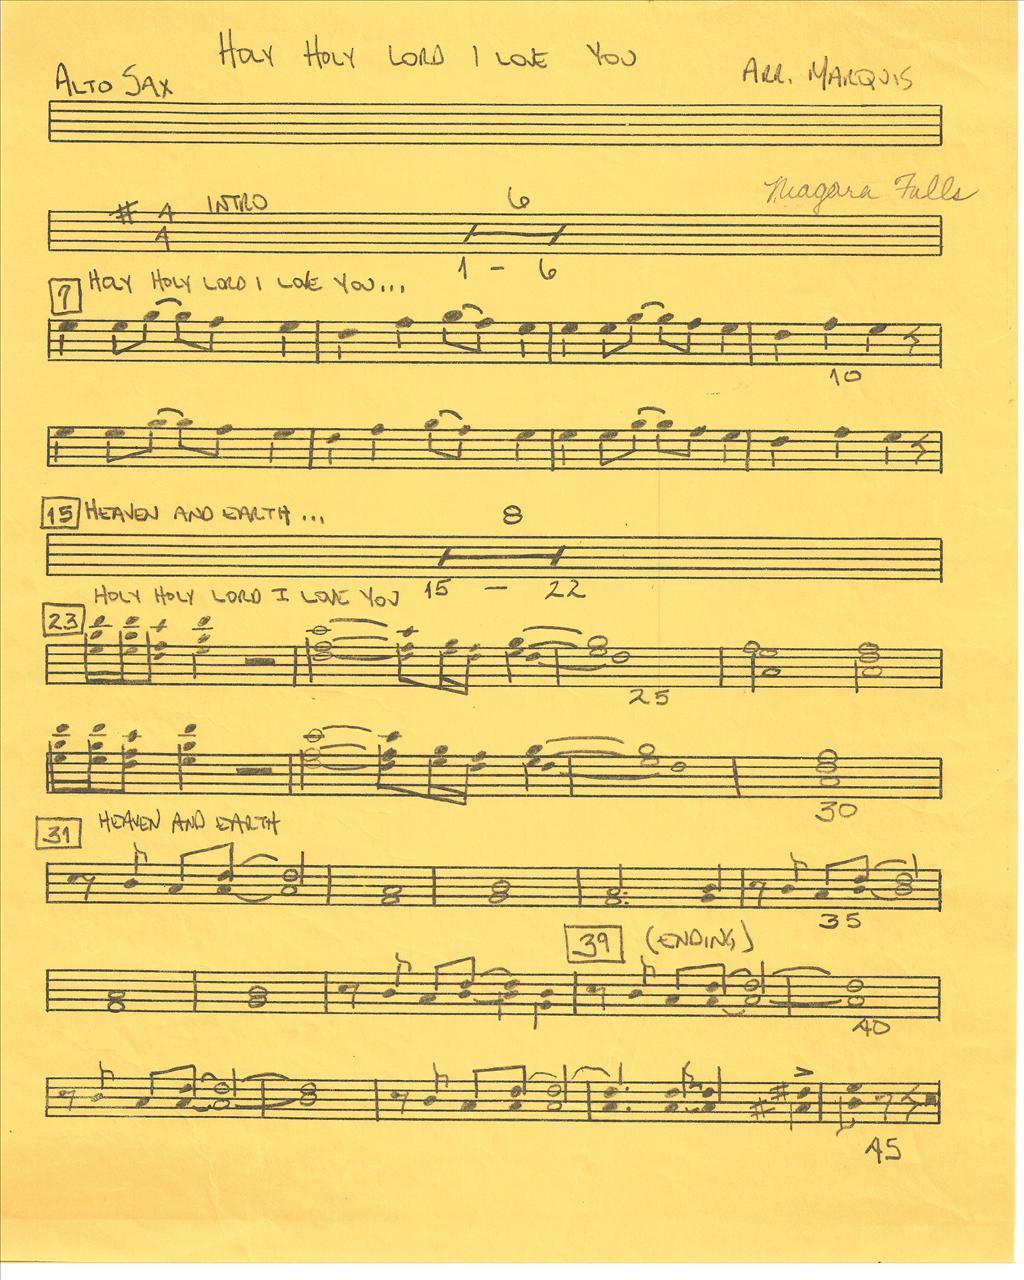 HOLY HOLY LORD I LOVE YOU
ALTO SAX
ARR. MARQUIS
Niagara Falls
4
4
INTRO
6
1 - 6
7 HOLY HOLY LORD I LOVE YOU...
10
15 HEAVEN AND EARTH ...
8
15 - 22
HOLY HOLY LORD I LOVE YOU
23
25
30
31 HEAVEN AND EARTH
35
39 (ENDING)
40
45